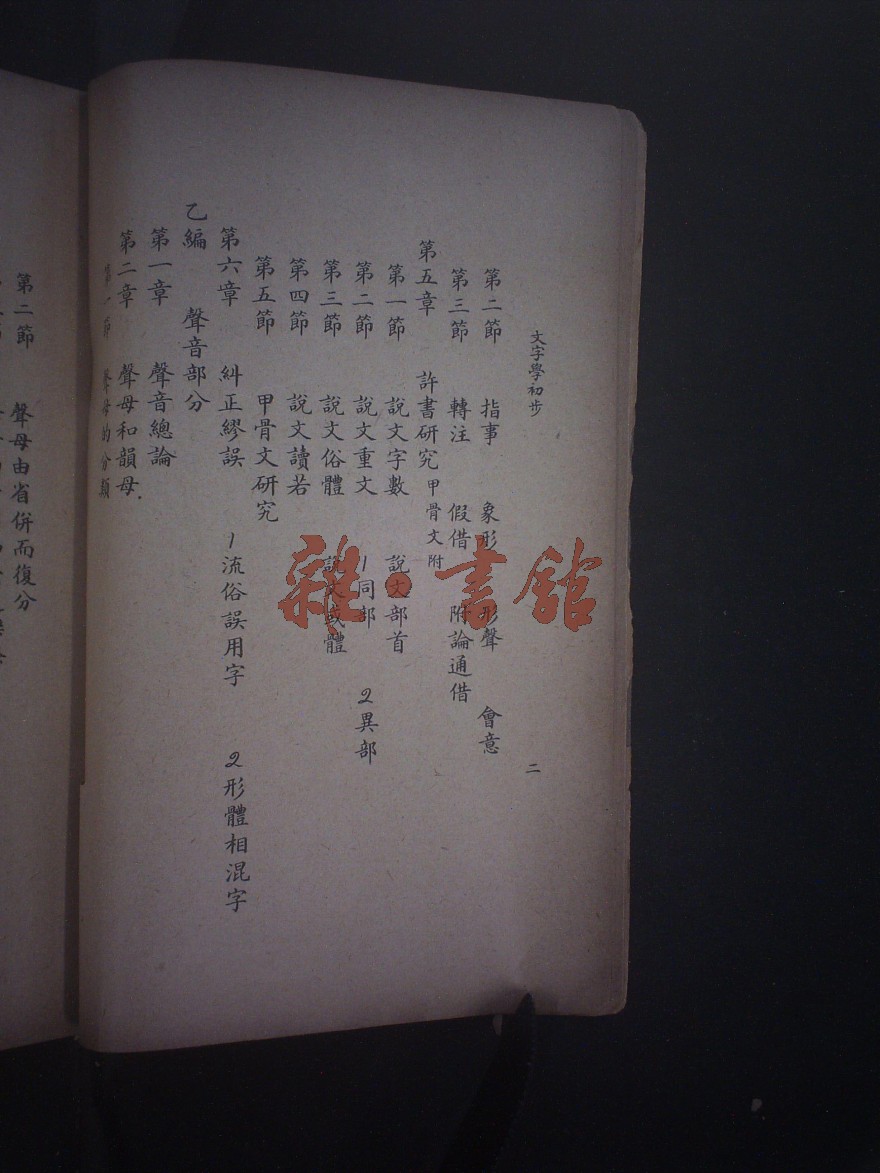 文字學初步
二
第二節 指事 象形 形聲 會意
第三節 轉注 假借 附論通借
第五章 許書研究 甲骨文附
第一節 說文字數 說文部首
第二節 說文重文 1同部 2異部
第三節 說文俗體 說文或體
第四節 說文讀若
第五節 甲骨文研究
第六章 糾正繆誤 1流俗誤用字 2形體相混字
乙編 聲音部分
第一章 聲音總論
第二章 聲母和韻母.
第一節 聲母的分類
第二節 聲母由省併而復分
雜·書館